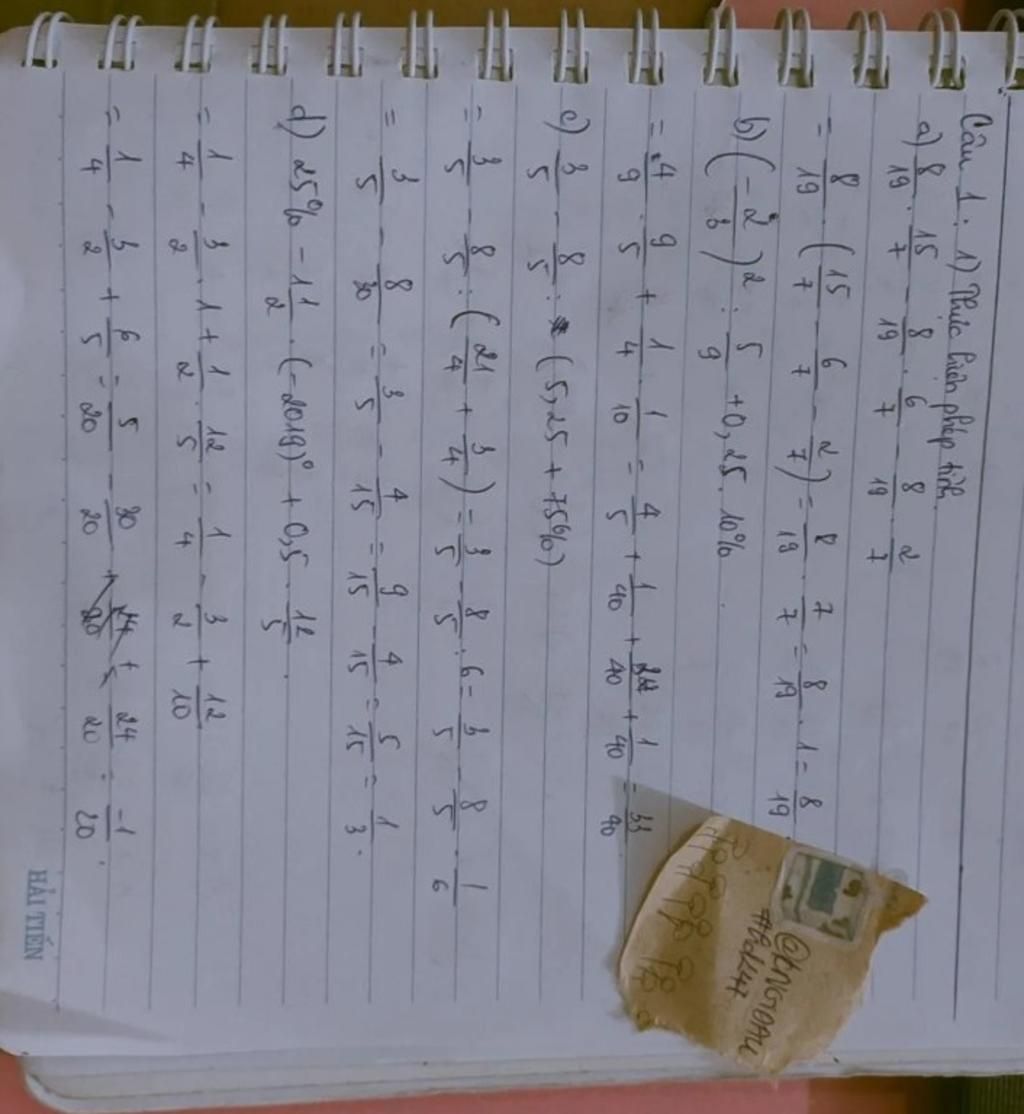 Câu 1: 1) Thực hiện phép tính
a) 8/19 . 15/7 - 8/19 . 6/7 - 8/19 . 2/7
= 8/19 . (15/7 - 6/7 - 2/7) = 8/19 . 7/7 = 8/19 . 1 = 8/19
b) (-2/3)2 : 5/9 + 0,25 . 10%
= 4/9 . 9/5 + 1/4 . 1/10 = 4/5 + 1/40 + /40 + 1/40 = 33/40
c) 3/5 - 8/5 : (5,25 + 75%)
= 3/5 - 8/5 : (21/4 + 3/4) = 3/5 - 8/5 . 6 = 3/5 - 8/5 . 1/6
= 3/5 - 8/30 = 3/5 - 4/15 = 9/15 - 4/15 = 5/15 = 1/3.
d) 25% - 1 1/2 . (-2019)⁰ + 0,5 . 12/5.
= 1/4 - 3/2 . 1 + 1/2 . 12/5 = 1/4 - 3/2 + 12/10
= 1/4 - 3/2 + 6/5 = 5/20 - 30/20 + 24/20 = -1/20.
HẢI TIẾN